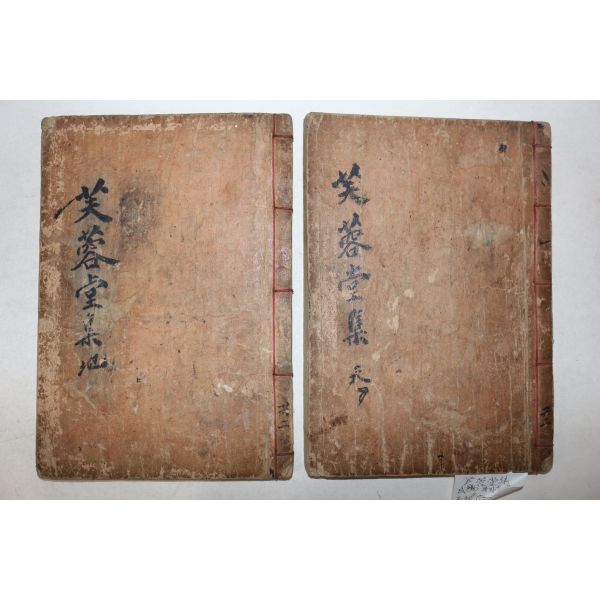 芙蓉堂集 地
共二
芙蓉堂集 天